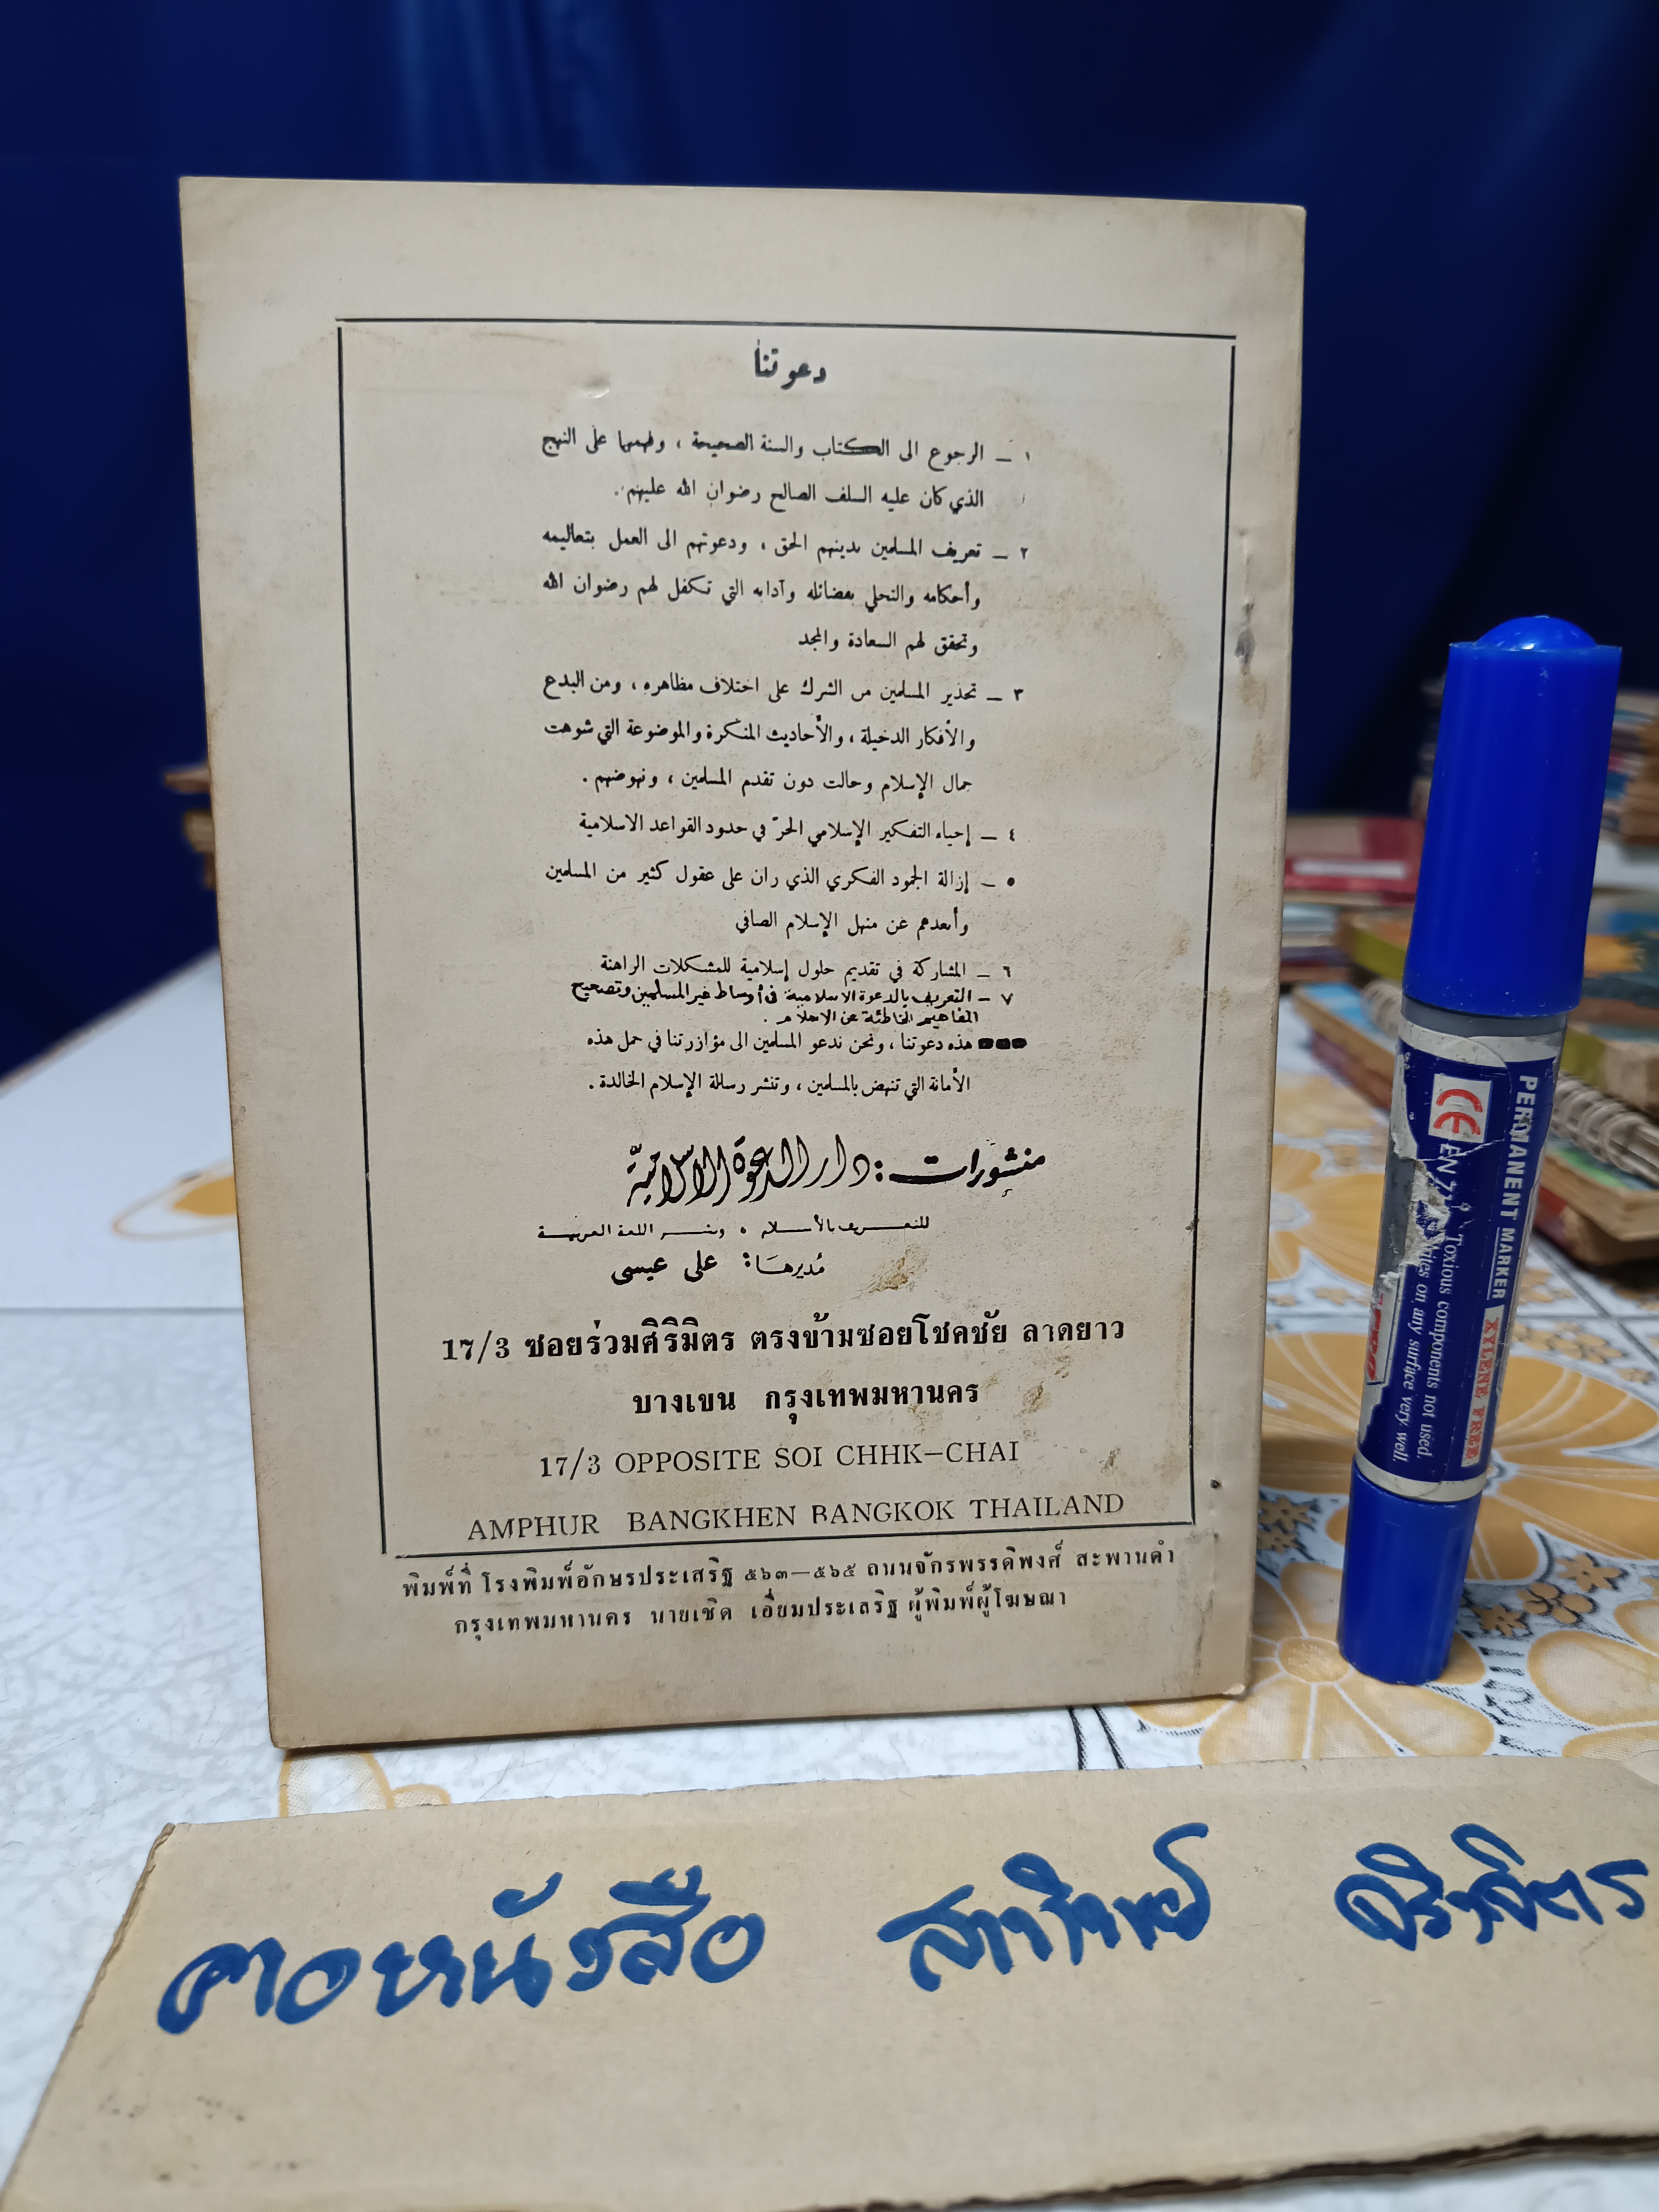 دعوتنا
١ – الرجوع الى الكتاب والسنة الصحيحة ، وفهمها على النهج
الذي كان عليه السلف الصالح رضوان الله عليهم .
٢ – تعريف المسلمين بدينهم الحق ، ودعوتهم الى العمل بتعاليمه
وأحكامه والتحلي بفضائله وآدابه التي تكفل لهم رضوان الله
وتحقق لهم السعادة والمجد
٣ – تحذير المسلمين من الشرك على اختلاف مظاهره ، ومن البدع
والأفكار الدخيلة ، والأحاديث المنكرة والموضوعة التي شوهت
جمال الإسلام وحالت دون تقدم المسلمين ، ونهوضهم .
٤ – إحياء التفكير الإسلامي الحرّ في حدود القواعد الاسلامية
٥ – إزالة الجمود الفكري الذي ران على عقول كثير من المسلمين
وأبعدهم عن منهل الإسلام الصافي
٦ – المشاركة في تقديم حلول إسلامية للمشكلات الراهنة
٧ – التعريف بالدعوة الاسلامية في أوساط غير المسلمين وتصحيح
المفاهيم الخاطئة عن الاسلام .
هذه دعوتنا ، ونحن ندعو المسلمين الى مؤازرتنا في حمل هذه
الأمانة التي تنهض بالمسلمين ، وتنشر رسالة الإسلام الخالدة .
منشورات : دار الدعوة الاسلاميّة
للتعريف بالأسلام ، ونشر اللغة العربية
مُديرهَا : على عيسى
17/3 ซอยร่วมศิริมิตร ตรงข้ามซอยโชคชัย ลาดยาว
บางเขน กรุงเทพมหานคร
17/3 OPPOSITE SOI CHHK–CHAI
AMPHUR BANGKHEN BANGKOK THAILAND
พิมพ์ที่ โรงพิมพ์อักษรประเสริฐ ๕๖๓—๕๖๕ ถนนจักรพรรดิพงศ์ สะพานดำ
กรุงเทพมหานคร นายเชิด เอี่ยมประเสริฐ ผู้พิมพ์ผู้โฆษณา
PERMANENT MARKER XYLENE FREE
CE EN 71
Toxious components not used.
Writes on any surface very well.
คอหนังสือ สาทิพย์ ศริจิตร